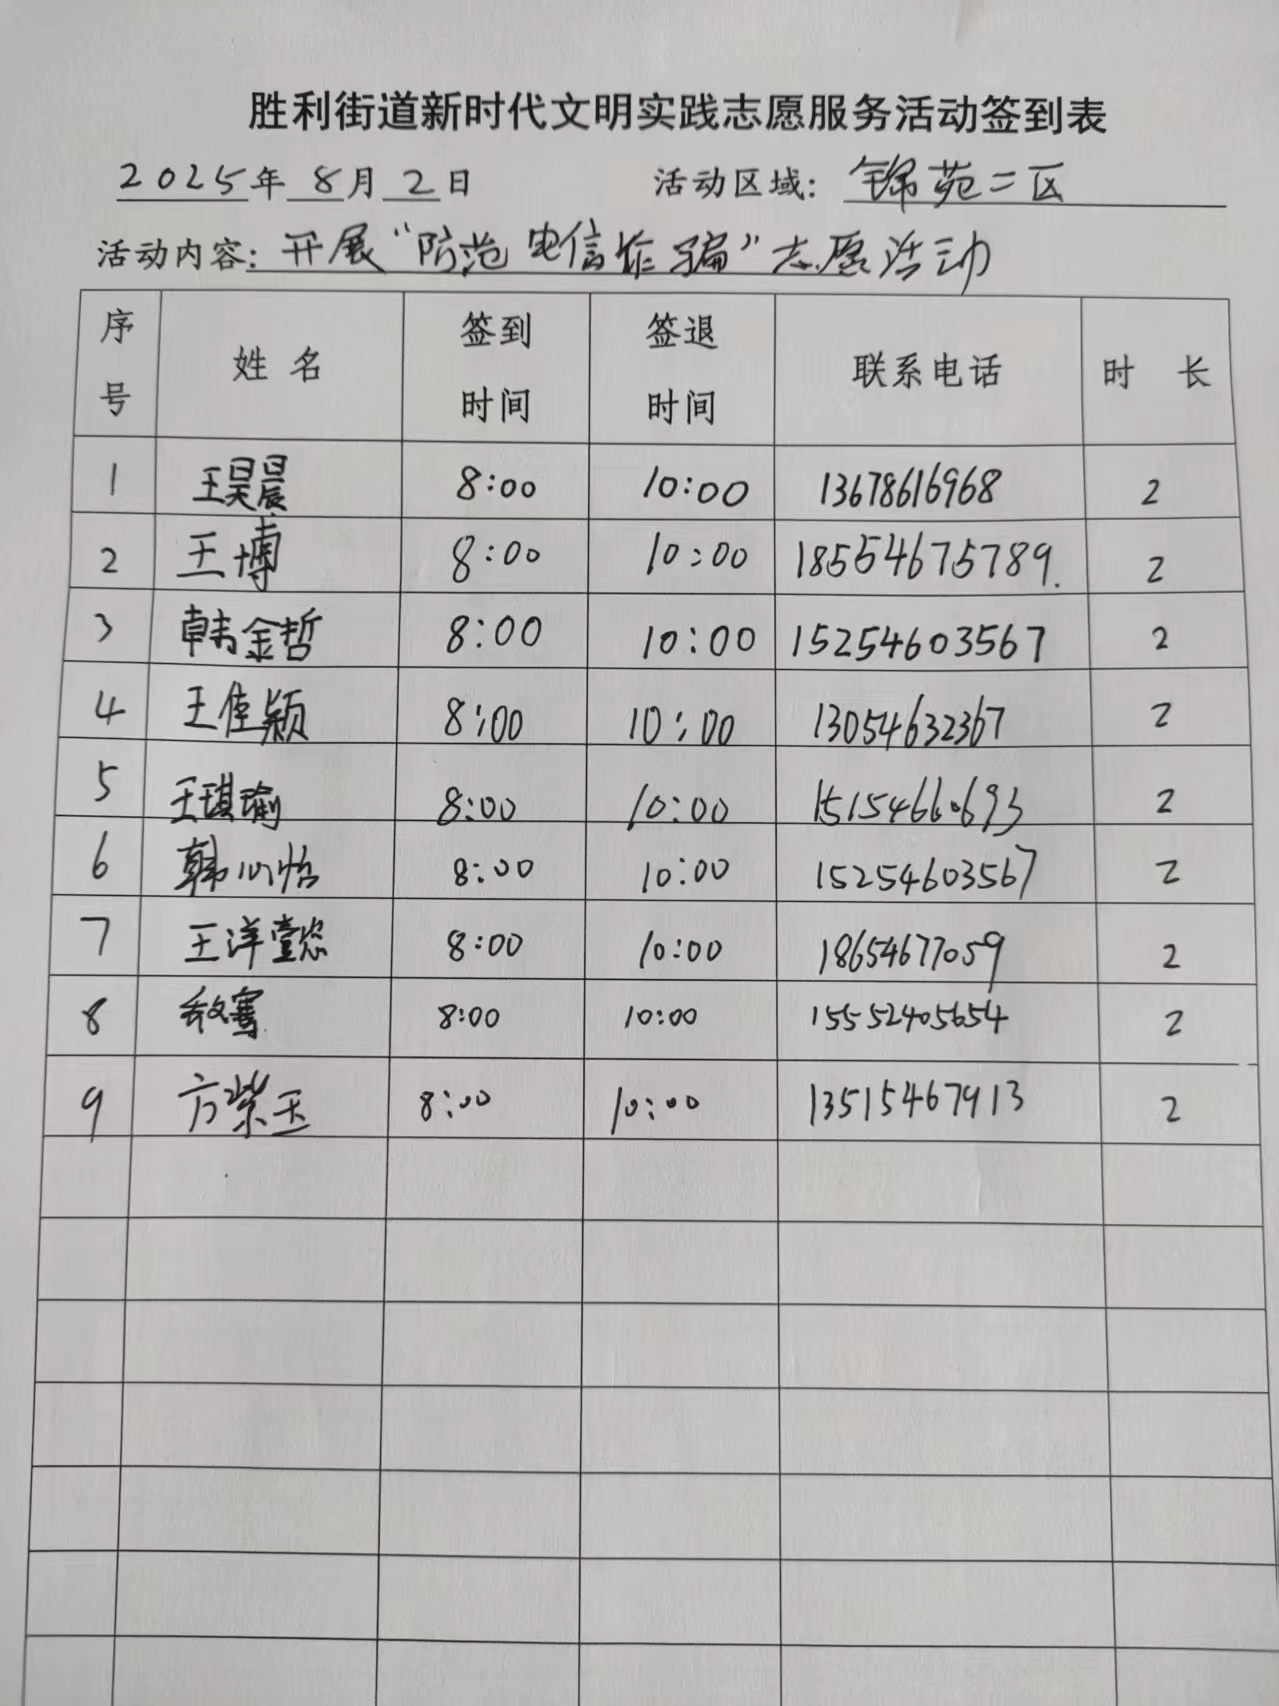 胜利街道新时代文明实践志愿服务活动签到表
2025年 8月 2日 活动区域: 锦苑二区
活动内容: 开展“防范电信诈骗”志愿活动
序号 姓名 签到时间 签退时间 联系电话 时长
1 王昊晨 8:00 10:00 13678616968 2
2 王博 8:00 10:00 18554675789. 2
3 韩金哲 8:00 10:00 15254603567 2
4 王佳颖 8:00 10:00 13054632367 2
5 王琪瑜 8:00 10:00 15154660693 2
6 韩心怡 8:00 10:00 15254603567 2
7 王洋壹您 8:00 10:00 18654677059 2
8 8:00 10:00 15552405654 2
9 方紫玉 8:00 10:00 13515467913 2